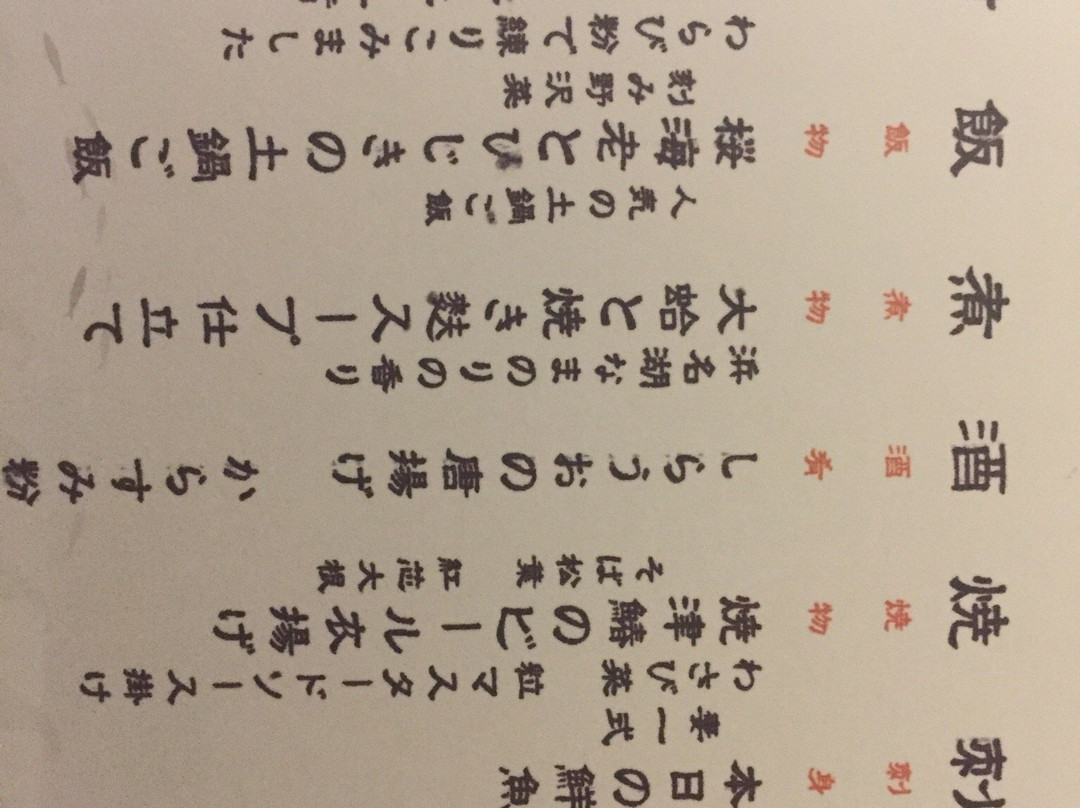 刺
刺身
本日の鮮魚
妻一式
焼
焼物
わさび菜 粒マスタードソース掛け
焼津鰆のビール衣揚げ
そば松葉 紅芯大根
酒
酒肴
しらうおの唐揚げ からすみ粉
煮
煮物
浜名湖なまのりの香り
大蛤と焼き麩スープ仕立て
飯
飯物
人気の土鍋ご飯
桜海老とひじきの土鍋ご飯
刻み野沢菜
わらび粉で練りこみました